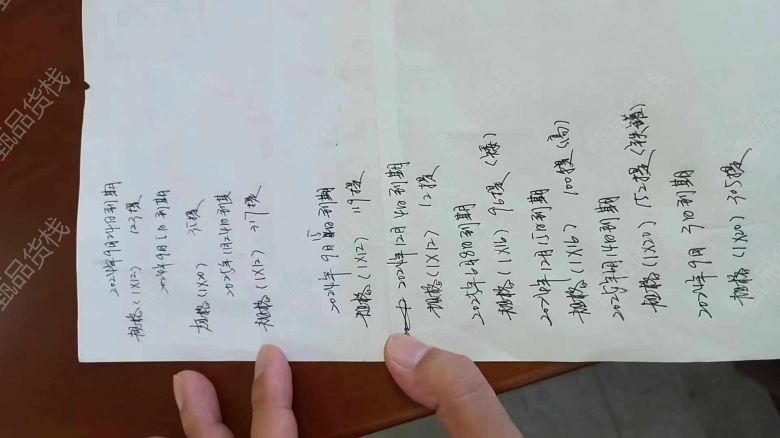 2024年9月24日到期
规格(1X12) 123提
2024年9月5日到期
规格(1X20) 35提
2025年1月24日到期
规格(1X12) 217提
2024年9月15日到期
规格(1X12) 119提
2024年12月4日到期
规格(1X12) 12提
2025年6月8日到期
规格(1X16) 96提
2024年12月15日到期
规格(1X16) 100提(高)
2025年1月14日到期
规格(1X20) 152提(铁罐)
2024年9月3日到期
规格(1X20) 335提
甄品货栈